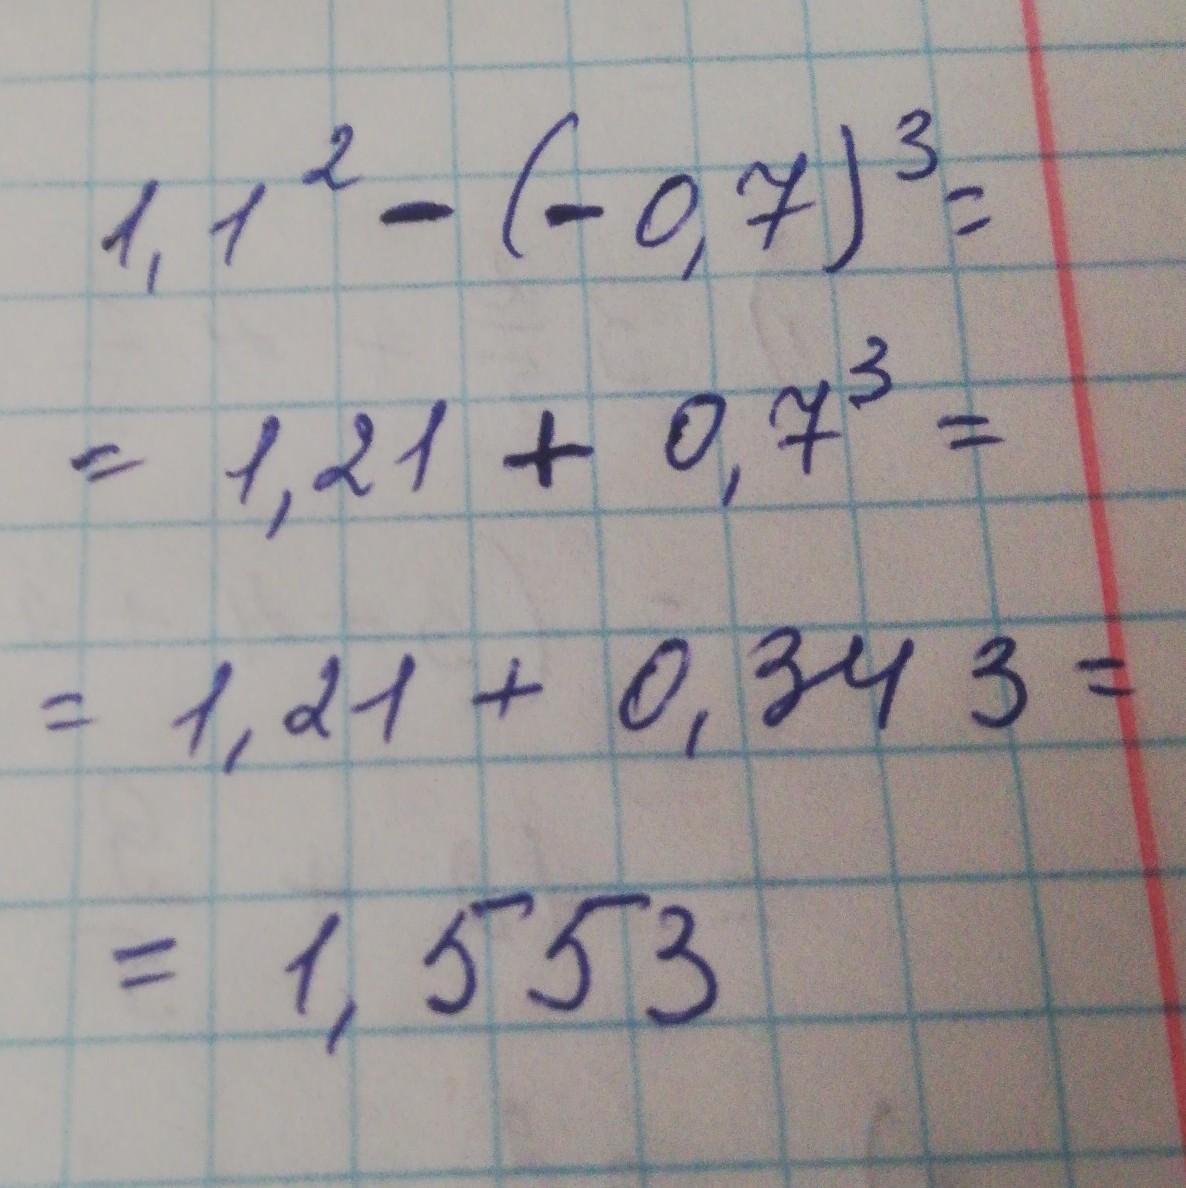 1,1² - (-0,7)³ =
= 1,21 + 0,7³ =
= 1,21 + 0,343 =
= 1,553